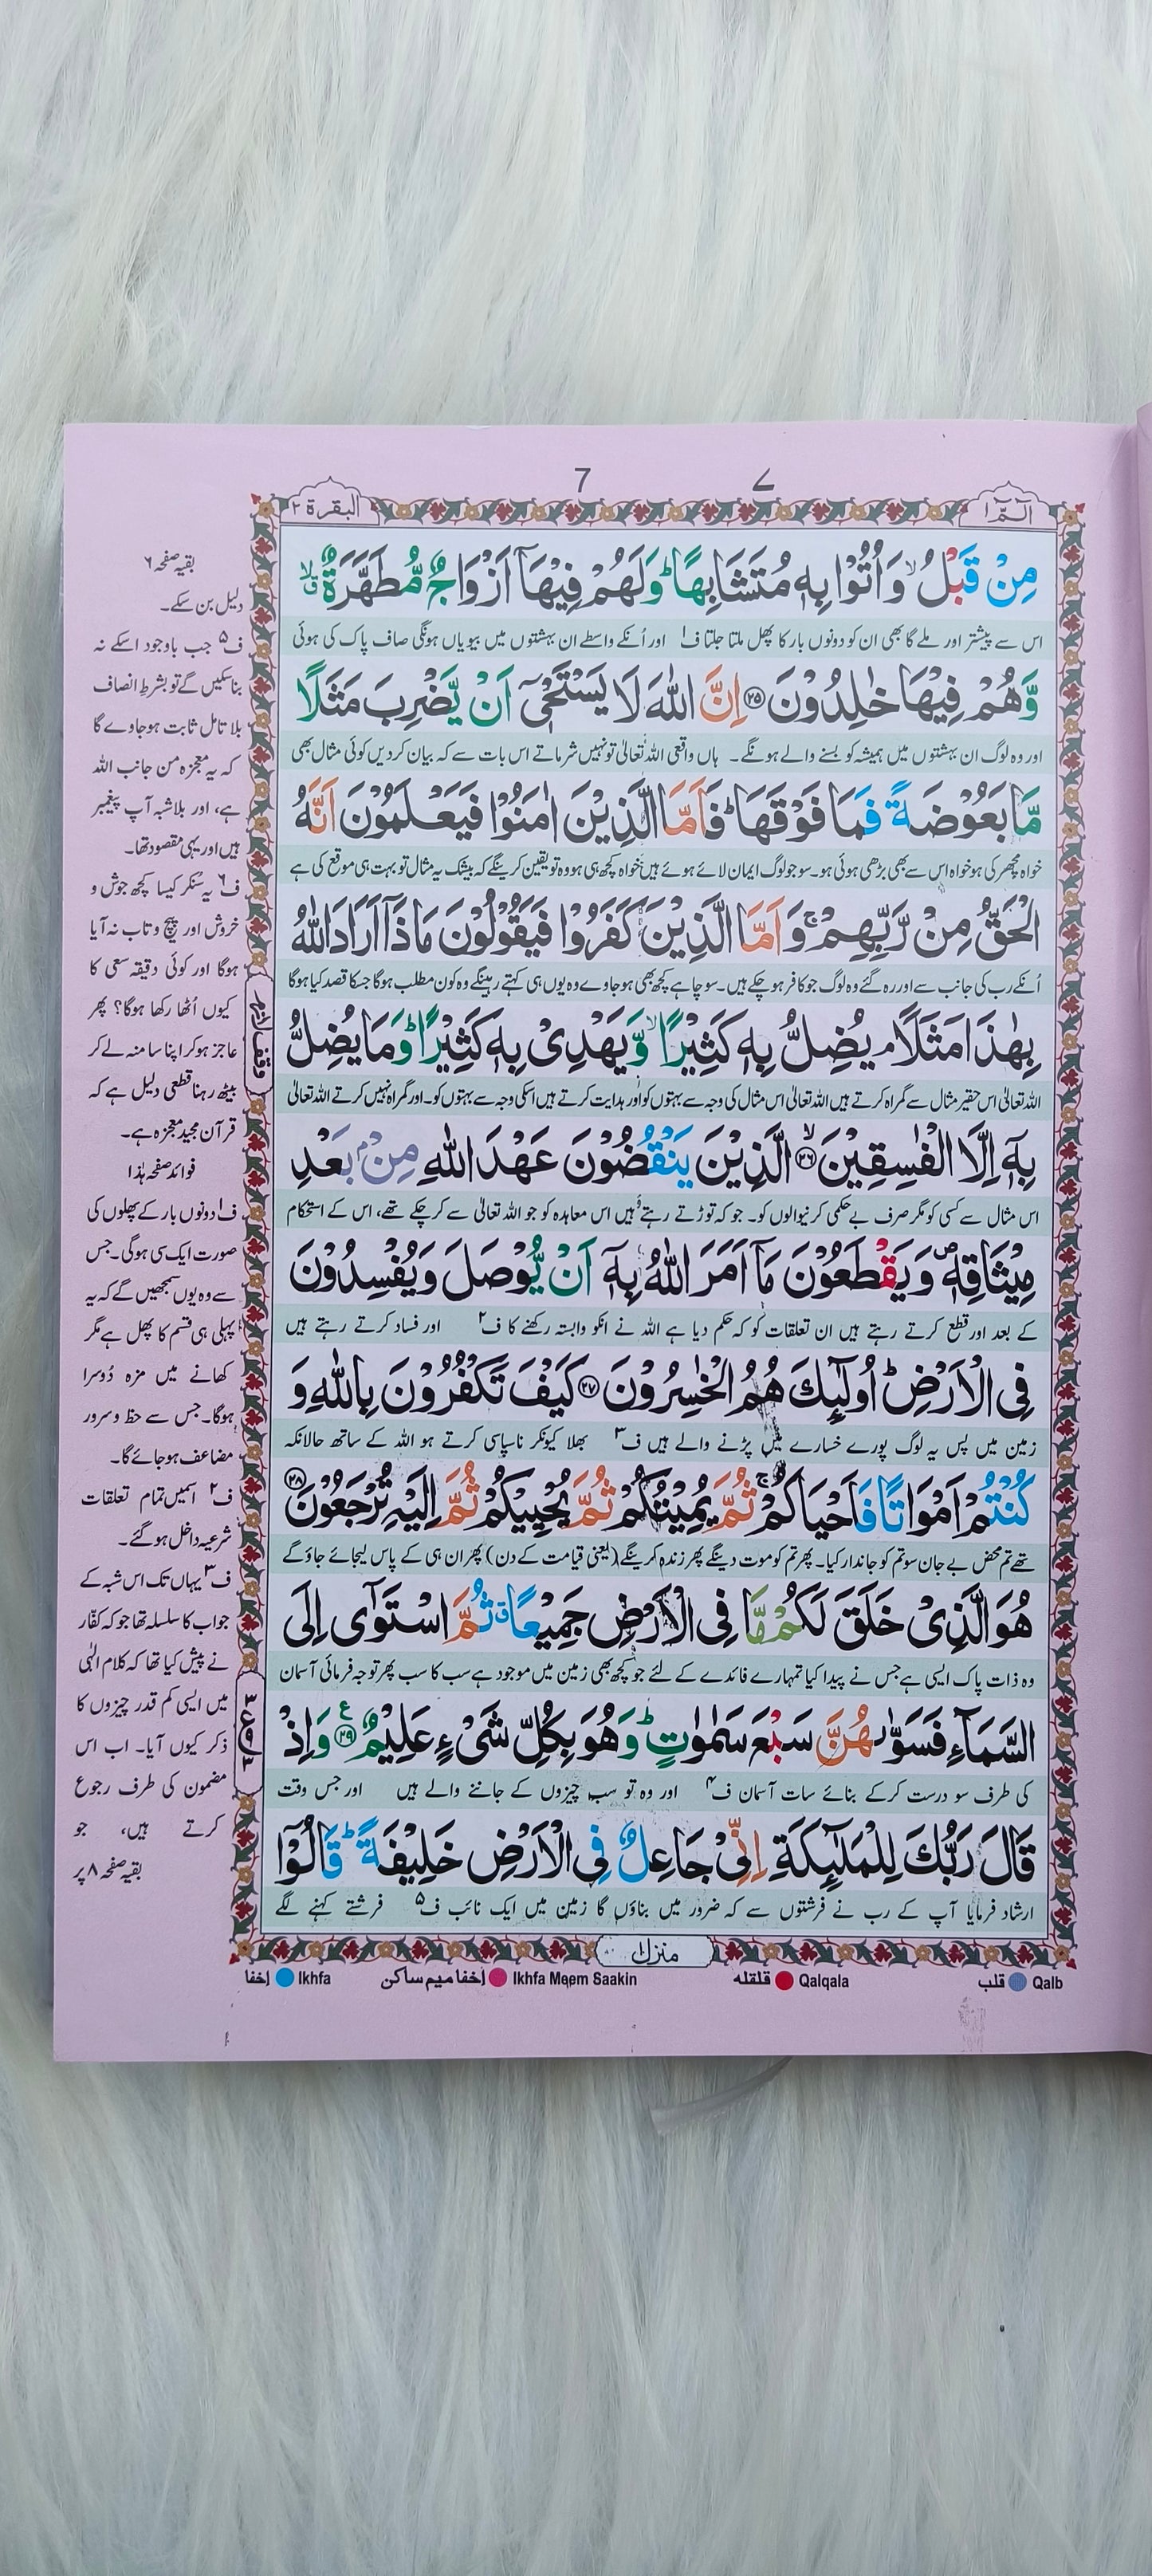 7 ۷
الٓمّٓ ۱ البقرة ۲
مِنْ قَبْلُ ۙ وَاُتُوْا بِهٖ مُتَشَابِهًا ؕ وَلَهُمْ فِيْهَاۤ اَزْوَاجٌ مُّطَهَّرَةٌ ۙۗ
اس سے پیشتر اور ملے گا بھی ان کو دونوں بار کا پھل ملتا جلتا ف۱ اور اُنکے واسطے ان بہشتوں میں بیویاں ہونگی صاف پاک کی ہوئی
وَّهُمْ فِيْهَا خٰلِدُوْنَ ﴿۲۵﴾ اِنَّ اللّٰهَ لَا يَسْتَحْيٖۤ اَنْ يَّضْرِبَ مَثَلًا
اور وہ لوگ ان بہشتوں میں ہمیشہ کو بسنے والے ہونگے۔ ہاں واقعی اللہ تعالیٰ تو نہیں شرماتے اس بات سے کہ بیان کردیں کوئی مثال بھی
مَّا بَعُوْضَةً فَمَا فَوْقَهَا ؕ فَاَمَّا الَّذِيْنَ اٰمَنُوْا فَيَعْلَمُوْنَ اَنَّهُ
خواہ مچھر کی ہو خواہ اس سے بھی بڑھی ہوئی ہو۔ سو جو لوگ ایمان لائے ہوئے ہیں خواہ کچھ ہی ہو وہ تو یقین کرینگے کہ بیشک یہ مثال تو بہت ہی موقع کی ہے
الْحَقُّ مِنْ رَّبِّهِمْ ۚ وَاَمَّا الَّذِيْنَ كَفَرُوْا فَيَقُوْلُوْنَ مَاذَاۤ اَرَادَ اللّٰهُ
اُنکے رب کی جانب سے اور رہ گئے وہ لوگ جو کافر ہو چکے ہیں۔ سو چاہے کچھ بھی ہو جاوے وہ یوں ہی کہتے رہینگے وہ کون مطلب ہوگا جسکا قصد کیا ہوگا
بِهٰذَا مَثَلًا ۘ يُضِلُّ بِهٖ كَثِيْرًا ۙ وَّيَهْدِىْ بِهٖ كَثِيْرًا ؕ وَمَا يُضِلُّ
اللہ تعالیٰ اس حقیر مثال سے گمراہ کرتے ہیں اللہ تعالیٰ اس مثال کی وجہ سے بہتوں کو اور ہدایت کرتے ہیں اسکی وجہ سے بہتوں کو۔ اور گمراہ نہیں کرتے اللہ تعالیٰ
بِهٖۤ اِلَّا الْفٰسِقِيْنَ ۙ﴿۲۶﴾ الَّذِيْنَ يَنْقُضُوْنَ عَهْدَ اللّٰهِ مِنْۢ بَعْدِ
اس مثال سے کسی کو مگر صرف بے حکمی کرنیوالوں کو۔ جو کہ توڑتے رہتے ہیں اس معاہدہ کو جو اللہ تعالیٰ سے کرچکے تھے، اس کے استحکام
مِيْثَاقِهٖ ۪ وَيَقْطَعُوْنَ مَاۤ اَمَرَ اللّٰهُ بِهٖۤ اَنْ يُّوْصَلَ وَيُفْسِدُوْنَ
کے بعد اور قطع کرتے رہتے ہیں ان تعلقات کو کہ حکم دیا ہے اللہ نے انکو وابستہ رکھنے کا ف۲ اور فساد کرتے رہتے ہیں
فِى الْاَرْضِ ؕ اُولٰٓئِكَ هُمُ الْخٰسِرُوْنَ ﴿۲۷﴾ كَيْفَ تَكْفُرُوْنَ بِاللّٰهِ وَ
زمین میں پس یہ لوگ پورے خسارے میں پڑنے والے ہیں ف۳ بھلا کیونکر ناسپاسی کرتے ہو اللہ کے ساتھ حالانکہ
كُنْتُمْ اَمْوَاتًا فَاَحْيَاكُمْ ۚ ثُمَّ يُمِيْتُكُمْ ثُمَّ يُحْيِيْكُمْ ثُمَّ اِلَيْهِ تُرْجَعُوْنَ ﴿۲۸﴾
تھے تم محض بے جان سو تم کو جاندار کیا۔ پھر تم کو موت دینگے پھر زندہ کرینگے (یعنی قیامت کے دن) پھر ان ہی کے پاس لیجائے جاؤگے
هُوَ الَّذِىْ خَلَقَ لَكُمْ مَّا فِى الْاَرْضِ جَمِيْعًا ۗ ثُمَّ اسْتَوٰٓى اِلَى
وہ ذات پاک ایسی ہے جس نے پیدا کیا تمہارے فائدے کے لئے جو کچھ بھی زمین میں موجود ہے سب کا سب پھر توجہ فرمائی آسمان
السَّمَآءِ فَسَوّٰىهُنَّ سَبْعَ سَمٰوٰتٍ ؕ وَهُوَ بِكُلِّ شَىْءٍ عَلِيْمٌ ﴿۲۹﴾ وَاِذْ
کی طرف سو درست کرکے بنائے سات آسمان ف۴ اور وہ تو سب چیزوں کے جاننے والے ہیں اور جس وقت
قَالَ رَبُّكَ لِلْمَلٰٓئِكَةِ اِنِّىْ جَاعِلٌ فِى الْاَرْضِ خَلِيْفَةً ؕ قَالُوْۤا
ارشاد فرمایا آپ کے رب نے فرشتوں سے کہ ضرور میں بناؤں گا زمین میں ایک نائب ف۵ فرشتے کہنے لگے
منزل ۱
بقیہ صفحہ ۶
دلیل بن سکے۔
ف۵ جب باوجود اسکے نہ
بنا سکیں گے تو بشرط انصاف
بلا تامل ثابت ہو جاوے گا
کہ یہ معجزہ من جانب اللہ
ہے، اور بلاشبہ آپ پیغمبر
ہیں اور یہی مقصود تھا۔
ف۶ یہ سنکر کیسا کچھ جوش و
خروش اور پیچ و تاب نہ آیا
ہوگا اور کوئی دقیقہ سعی کا
کیوں اُٹھا رکھا ہوگا؟ پھر
عاجز ہوکر اپنا سا منہ لے کر
بیٹھ رہنا قطعی دلیل ہے کہ
قرآن مجید معجزہ ہے۔
فوائد صفحہ ہٰذا
ف۱ دونوں بار کے پھلوں کی
صورت ایک سی ہوگی۔ جس
سے وہ یوں سمجھیں گے کہ یہ
پہلی ہی قسم کا پھل ہے مگر
کھانے میں مزہ دُوسرا
ہوگا۔ جس سے حظ و سرور
مضاعف ہو جائے گا۔
ف۲ اسمیں تمام تعلقات
شرعیہ داخل ہوگئے۔
ف۳ یہاں تک اس شبہ کے
جواب کا سلسلہ تھا جو کہ کفّار
نے پیش کیا تھا کہ کلام الٰہی
میں ایسی کم قدر چیزوں کا
ذکر کیوں آیا۔ اب اس
مضمون کی طرف رجوع
کرتے ہیں، جو
بقیہ صفحہ ۸ پر
وقف لازم
Qalb قلب Qalqala قلقله Ikhfa Meem Saakin إخفا ميم ساكن Ikhfa إخفا